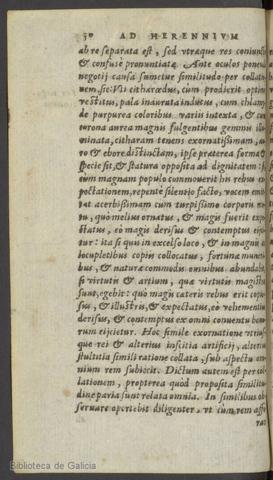 50 AD HERENNIVM
ab re separata est, sed vtræque res coniunctè
& confusè pronuntiatæ. Ante oculos ponendi
negotij causa sumetur similitudo per collatio
nem, sic: Vti citharœdus, cum prodierit optimè
vestitus, pala inaurata indutus, cum chlamy
de purpurea coloribus variis intexta, & cum
corona aurea magnis fulgentibus gemmis illu
minata, citharam tenens exornatissimam, au
ro & ebore distinctam, ipse præterea forma &
specie sit, & statura apposita ad dignitatem: si
cum magnam populo commouerit his rebus ex
pectationem, repentè silentio facto, vocem emit
tat acerbissimam cum turpissimo corporis mo
tu, quò melius ornatus, & magis fuerit expe
ctatus, eò magis derisus & contemptus eijci
tur: ita si quis in excelso loco, & in magnis ac
locupletibus copiis collocatus, fortunæ muneri
bus, & naturæ commodis omnibus abundabit,
si virtutis & artium, quæ virtutis magistræ
sunt, egebit: quò magis cæteris rebus erit copio
sus, & illustris, & expectatus, eò vehementius
derisus, & contemptus ex omni conuentu bono
rum eijcietur. Hoc simile exornatione vtrius
que rei & alterius inscitia artificij, alterius
stultitia simili ratione collata, sub aspectum om
nium rem subiicit. Dictum autem est per col
lationem, propterea quòd proposita similitu
dine paria sunt relata omnia. In similibus ob
seruare oportebit diligenter, vt cum rem affe
ra
Biblioteca de Galicia